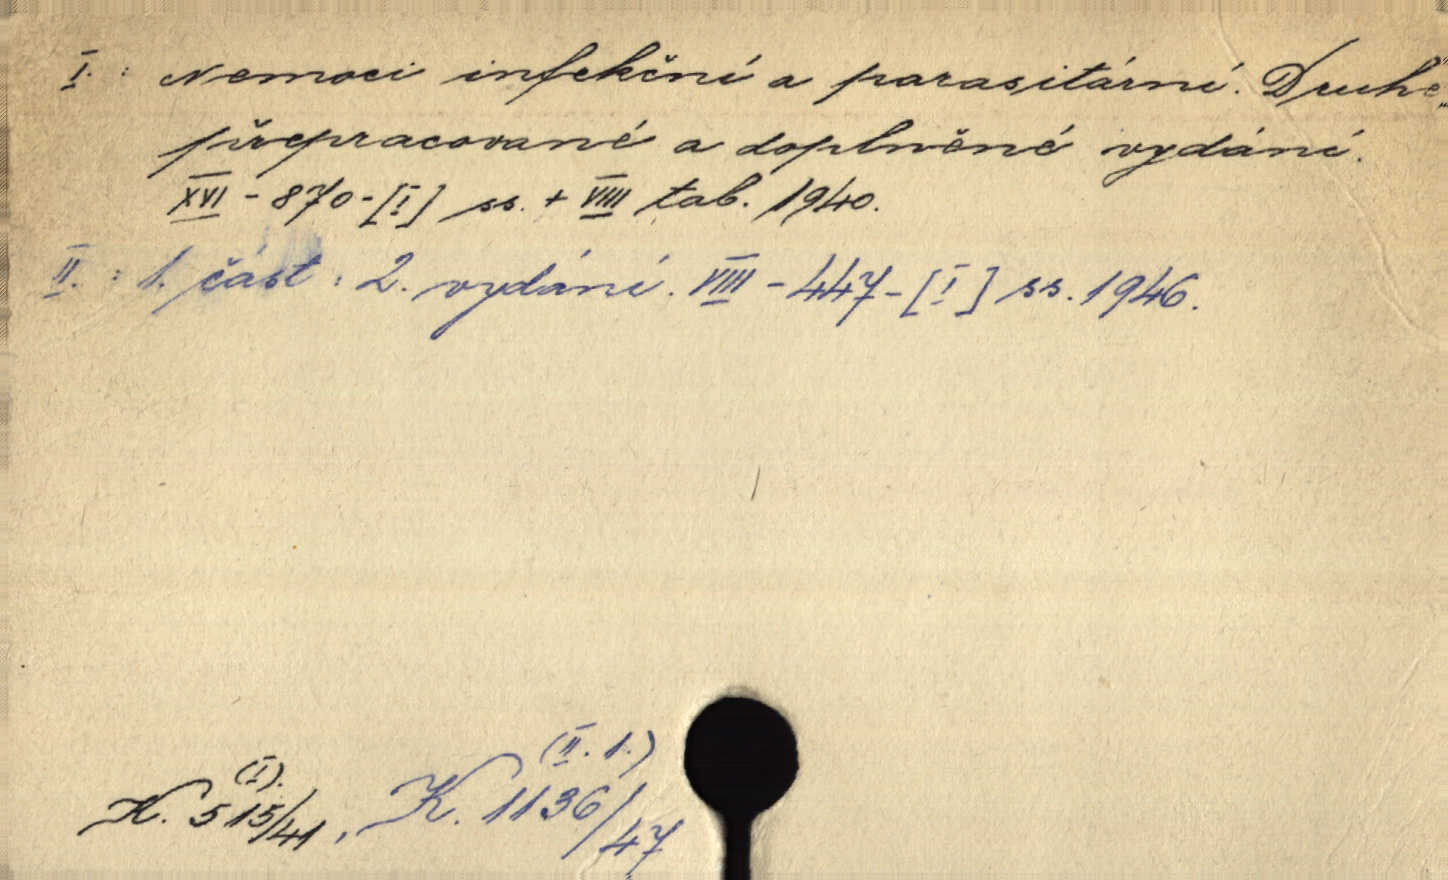 I. : Nemoci infekční a parasitární. Druhé,
přepracované a doplněné vydání.
XVI - 870 - [I] ss. + VIIII tab. 1940.
II. : 1. část : 2. vydání. VIIII - 447 - [I] ss. 1946.
(I). (II. 1.)
K. 515/41, K. 1136/47